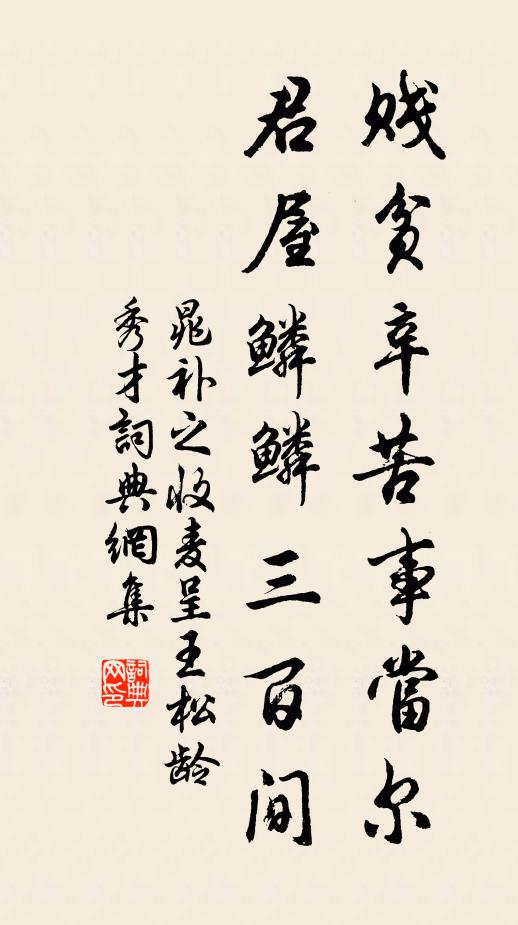 贱贫辛苦事當尔
君屋鱗鱗三百间
晁补之收麦呈王松龄
秀才詞典網集
詞典网印